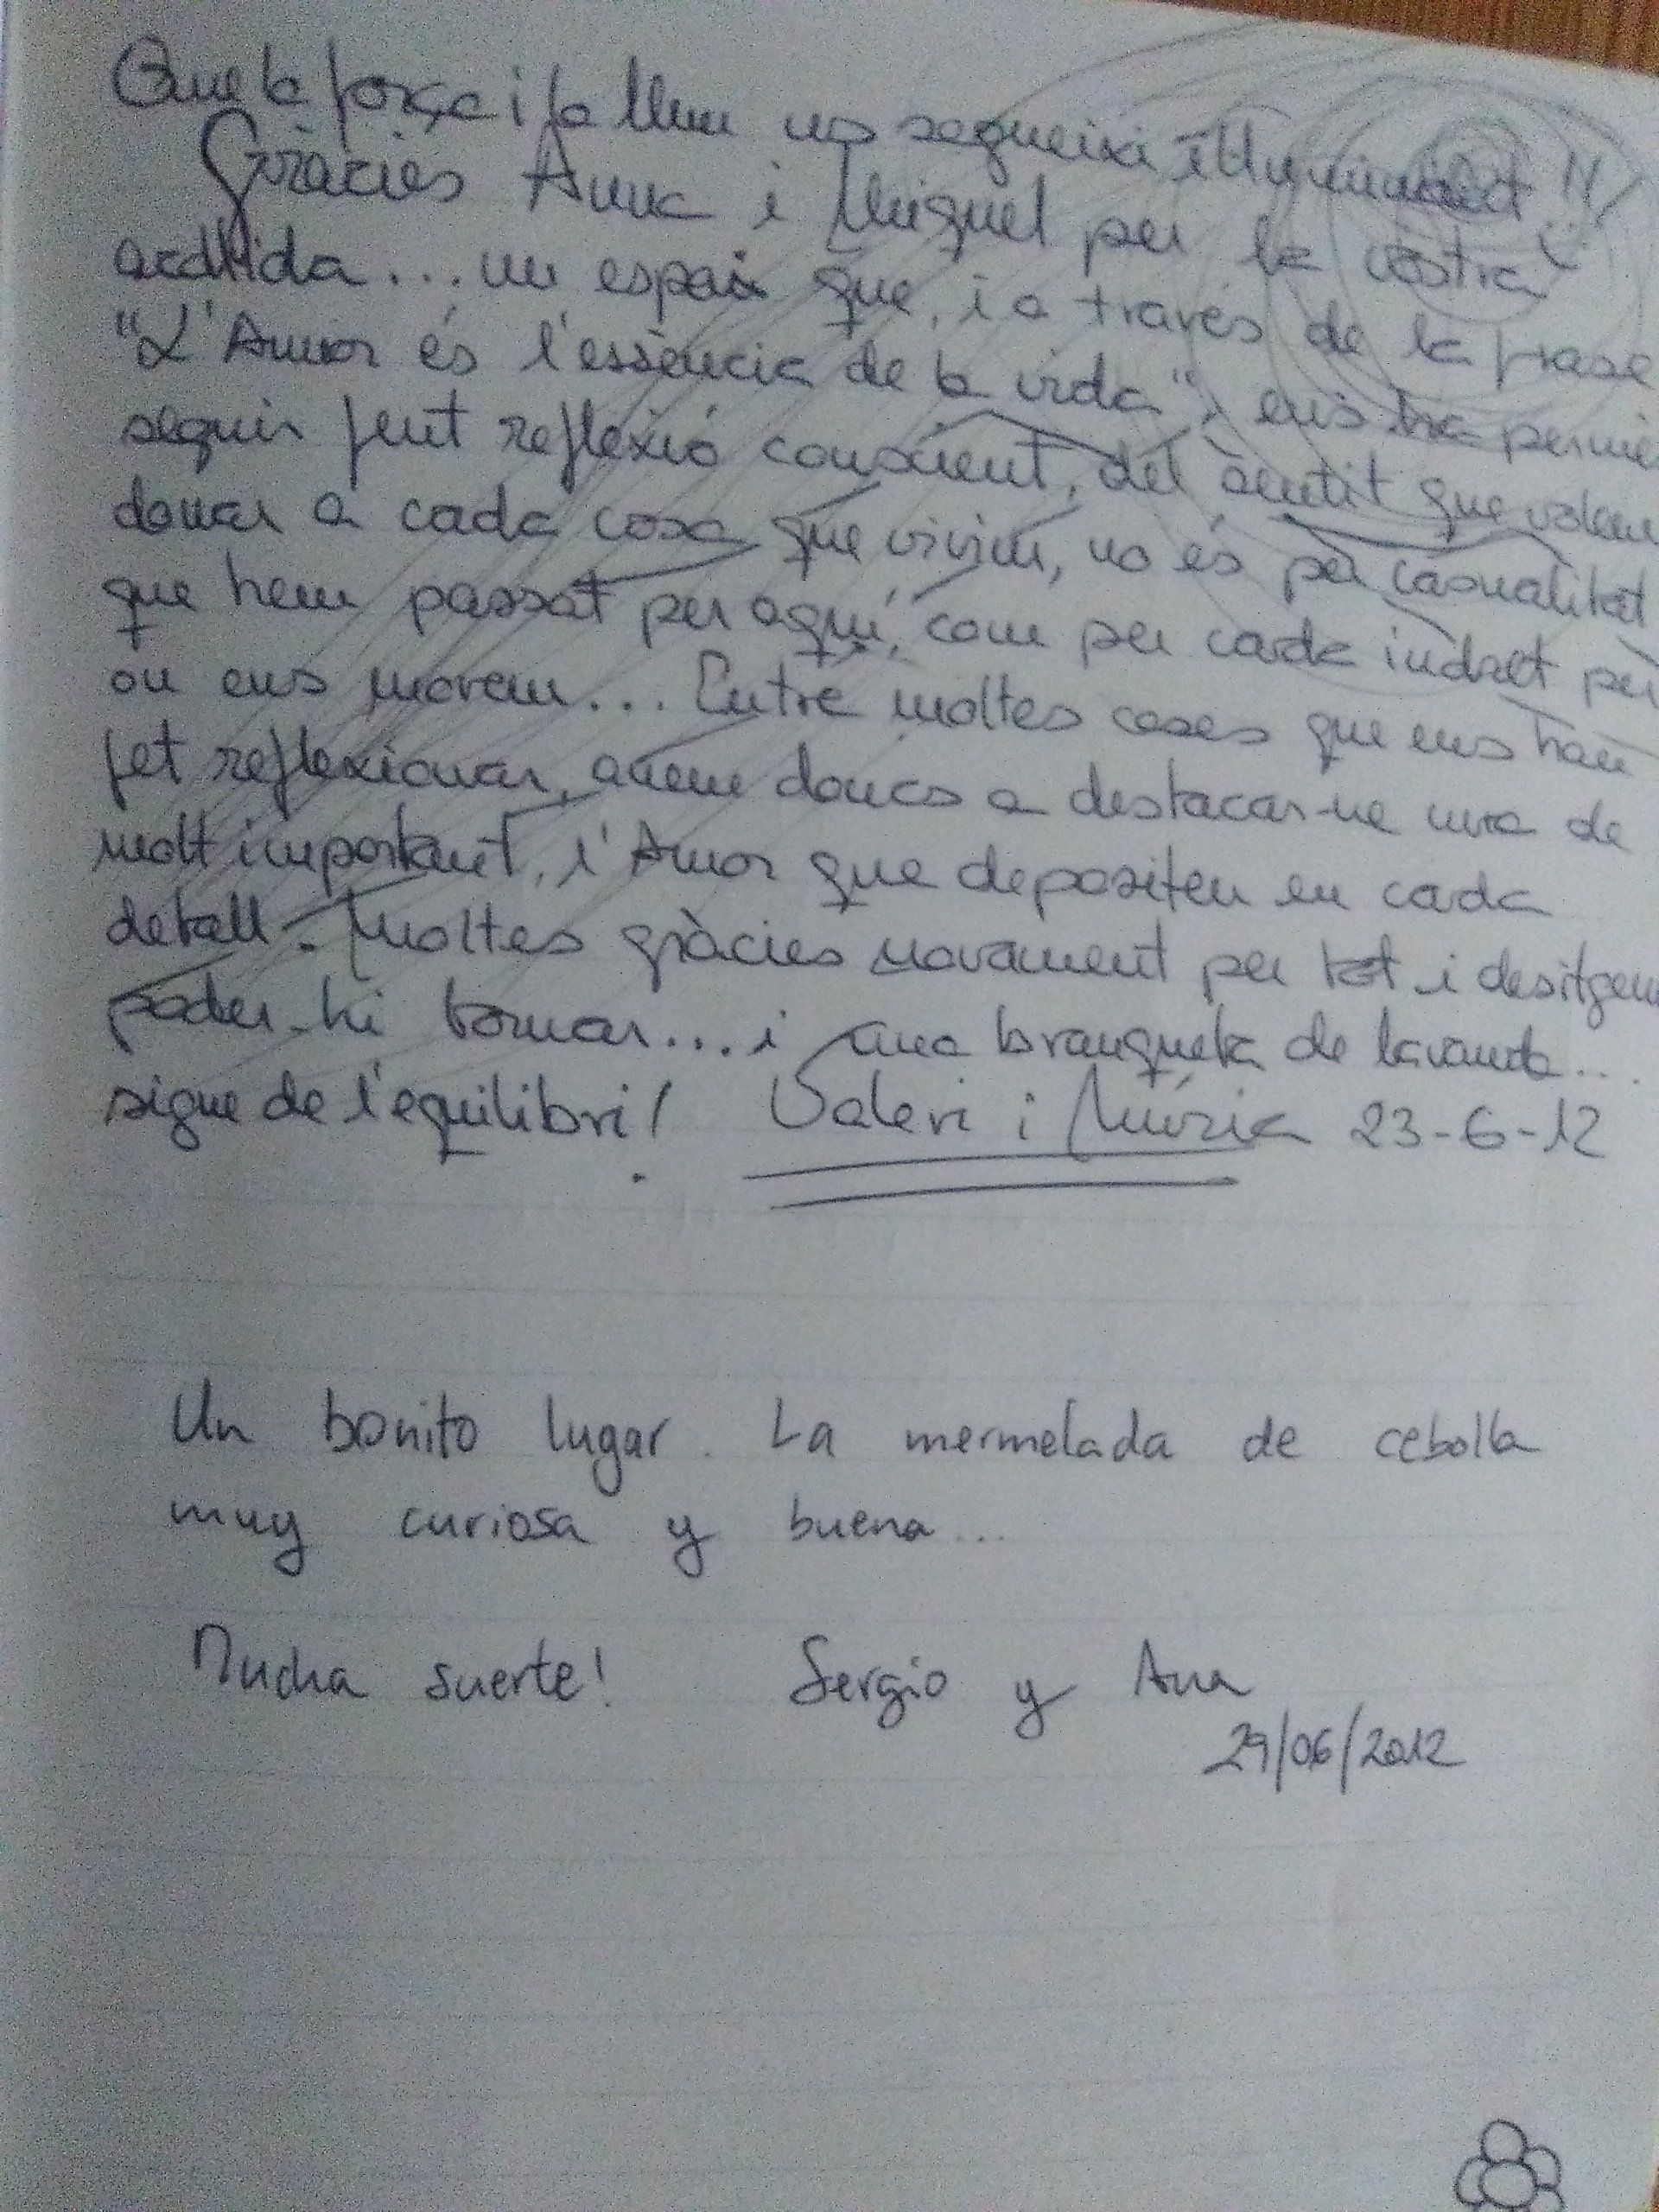 Que la força i la llum us segueixi il·luminant!!
Gràcies Anna i Miquel per la vostra
acollida... un espai que, i a través de la frase
"L'Amor és l'essència de la vida", ens ha permès
seguir fent reflexió conscient, del sentit que volem
donar a cada cosa que vivim, no és per casualitat
que hem passat per aquí, com per cada indret per
on ens movem... Entre moltes coses que ens han
fet reflexionar, anem doncs a destacar-ne una de
molt important, l'Amor que depositeu en cada
detall. Moltes gràcies novament per tot i desitgem
poder-hi tornar... i una branqueta de lavanda...
signe de l'equilibri! Valeri i Núria 23-6-12
Un bonito lugar. La mermelada de cebolla
muy curiosa y buena...
Mucha suerte! Sergio y Ana
29/06/2012